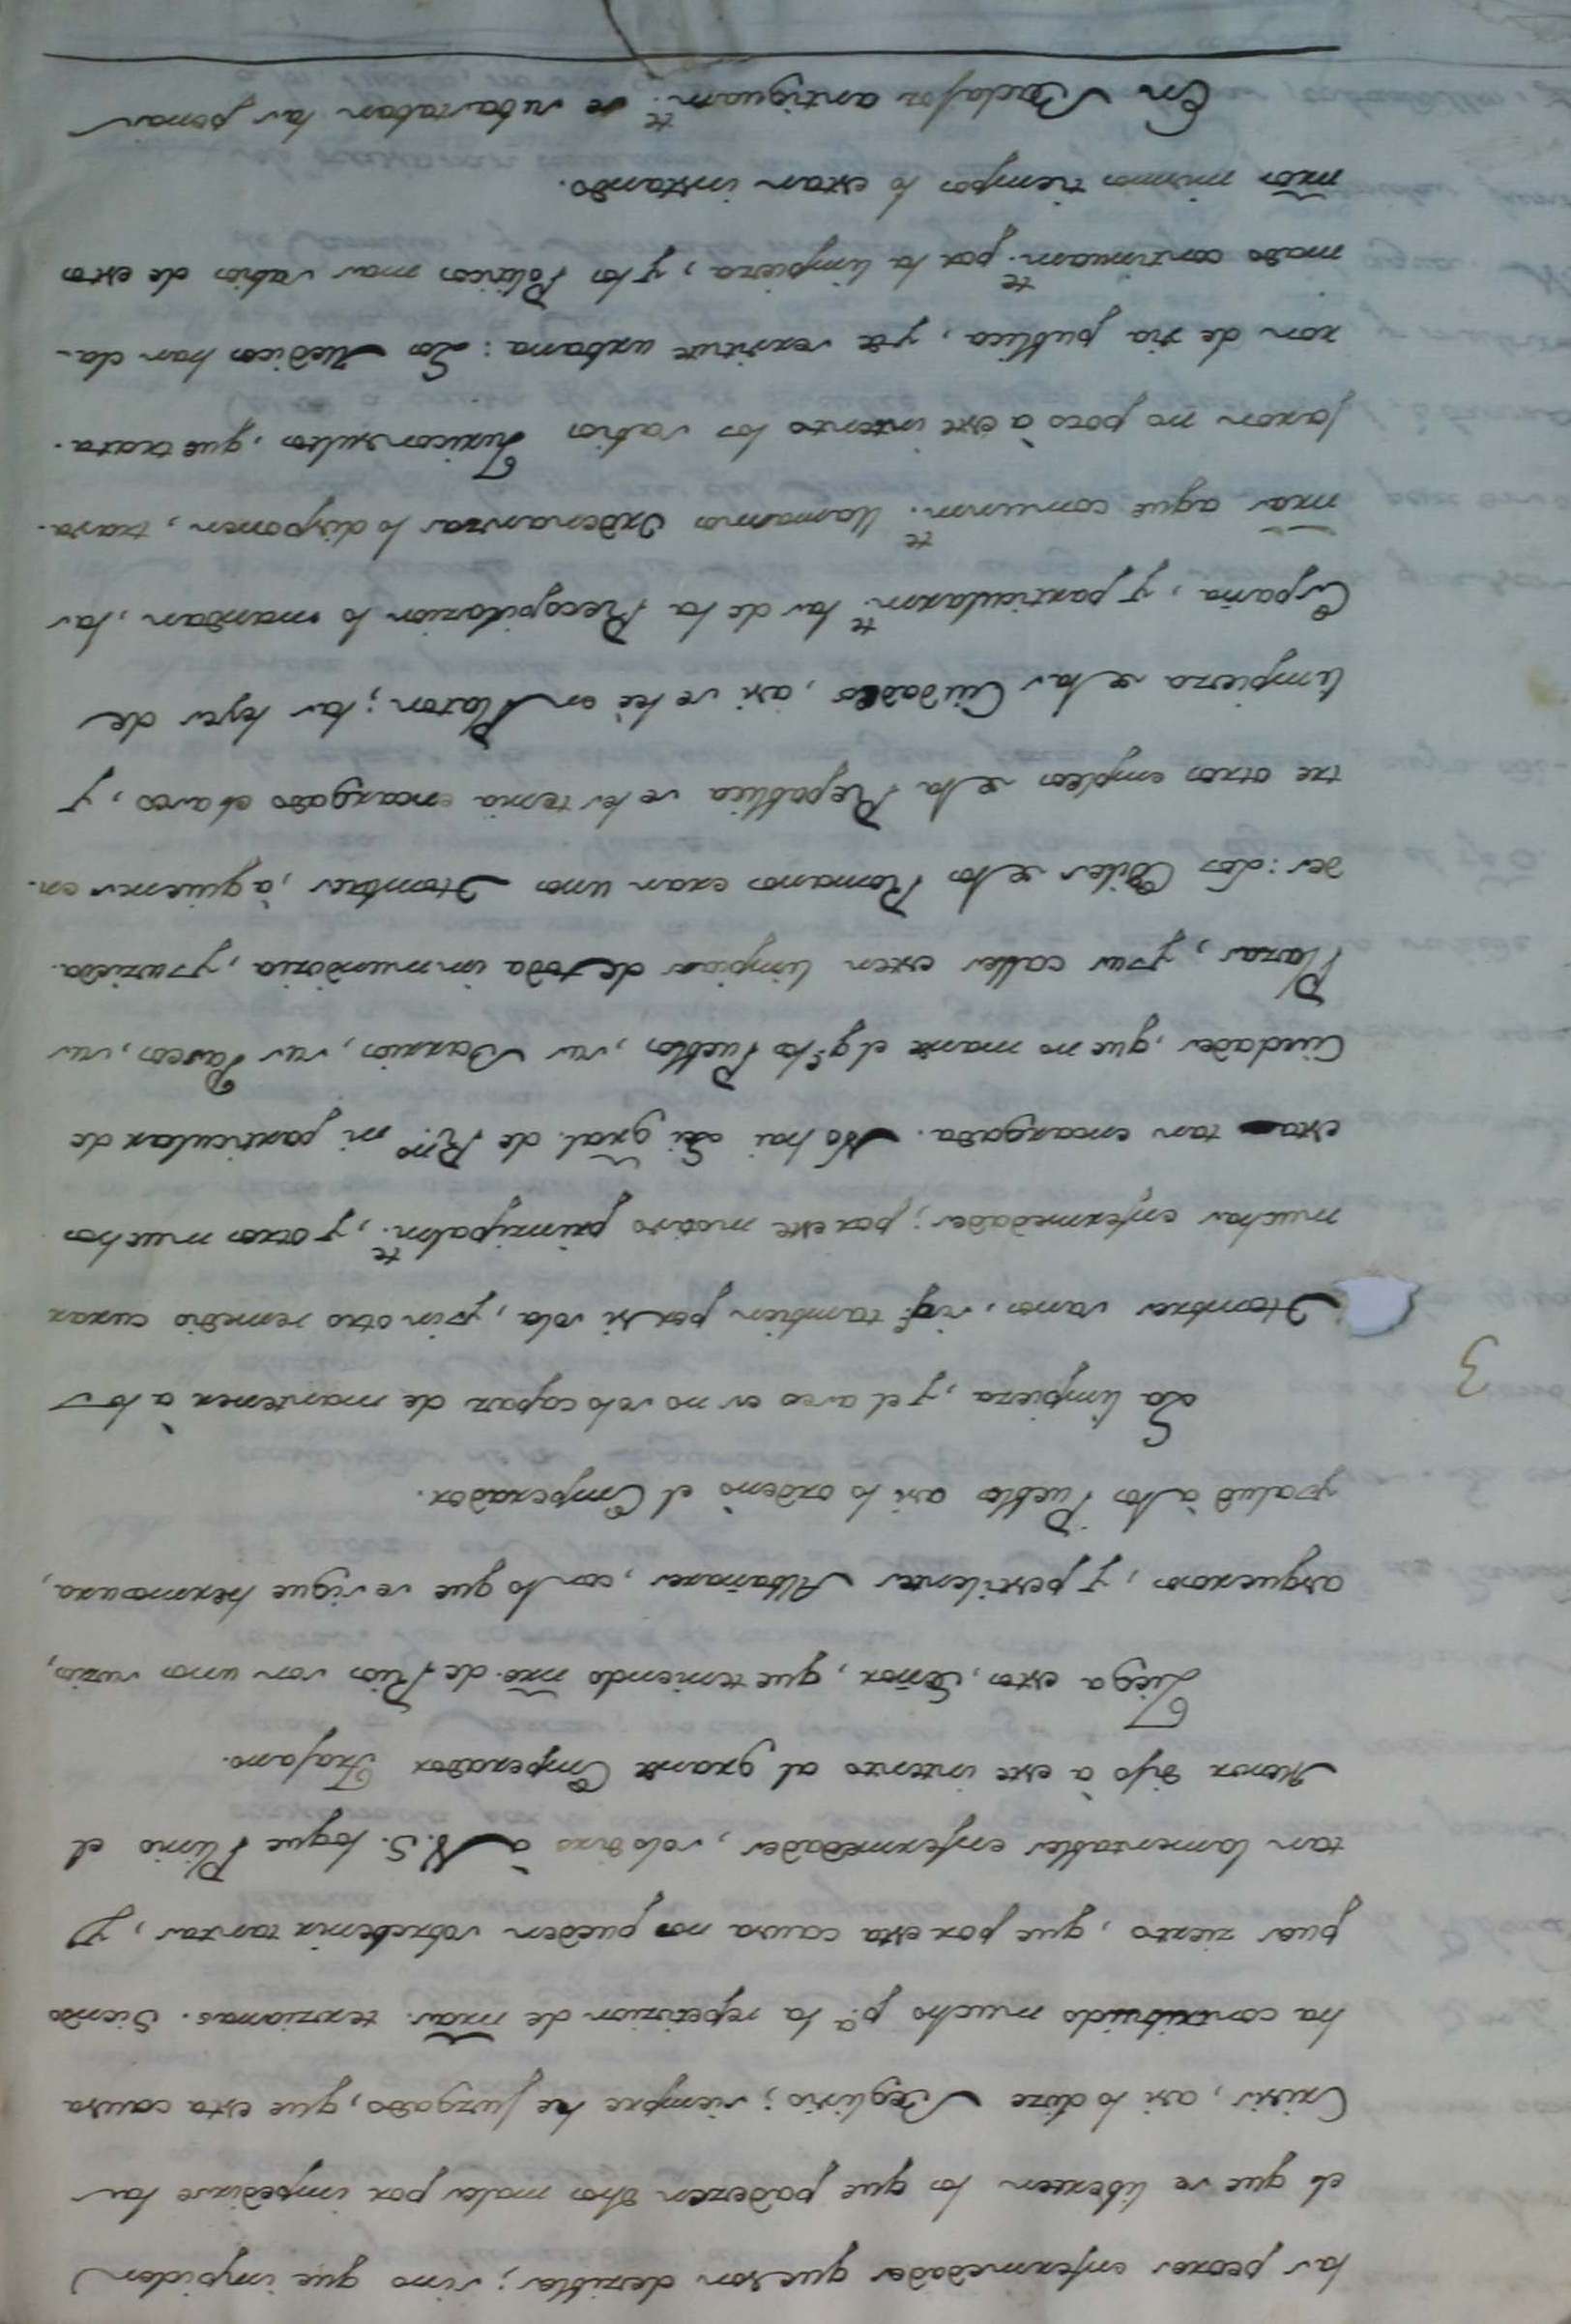 las peores enfermedades que son dezibles; sino que impiden
el que se liberten los que padezen dhos males por impedirse las
Crisis, asi lo dize Seglirio; siempre he juzgado, que esta causa
ha contribuido mucho p.ª la repetizion de nr̃as. terzianas. Siendo
pues zierto, que por esta causa nos pueden sobrebenir tantas, y
tan lamentables enfermedades, solo diré à V.S. lo que Plinio el
Menor dijo à este intento al grande Emperador Trajano.
Zuega estos, Señor, que teniendo nr̃e. de Rios son unos suzios,
asquerosos, y pestilentes Albañares, con lo que se sigue hermosura,
y salud à los Pueblos asi lo ordenò el Emperador.
La limpieza, y el aseo es no solo capaz de mantener à los
Hombres sanos, sig.ᵉ tambien por si sola, y sin otro remedio curar
muchas enfermedades; por este motivo prinzipalm.ᵗᵉ, y otros muchos
esta tan encargada. No hai Lei gral. de R.ⁿᵒ ni particular de
Ciudades, que no mande el q.ᵉ los Pueblos, sus Barrios, sus Paseos, sus
Plazas, y sus calles esten limpias de toda immundizia, y suzieda-
des: Los Ediles de los Romanos eran unos Hombres, à quienes en-
tre otros empleos de la Republica se les tenia encargado el aseo, y
limpieza de las Ciudades, asi se leè en Platon; las leyes de
España, y particularm.ᵗᵉ las de la Recopilazion lo mandan, las
nr̃as aque comunm.ᵗᵉ llamamos Ordenanzas lo disponen, traba-
jaron no poco à este intento los sabios Jurisconsultos, que trata-
ron de via publica, y de servitute urbana: Los Medicos han cla-
mado continuam.ᵗᵉ por la limpieza, y los Politicos mas sabios de estos
nr̃os mismos tiempos lo estan instando.
En Badajoz antiguam.ᵗᵉ se subastaban las penas
3